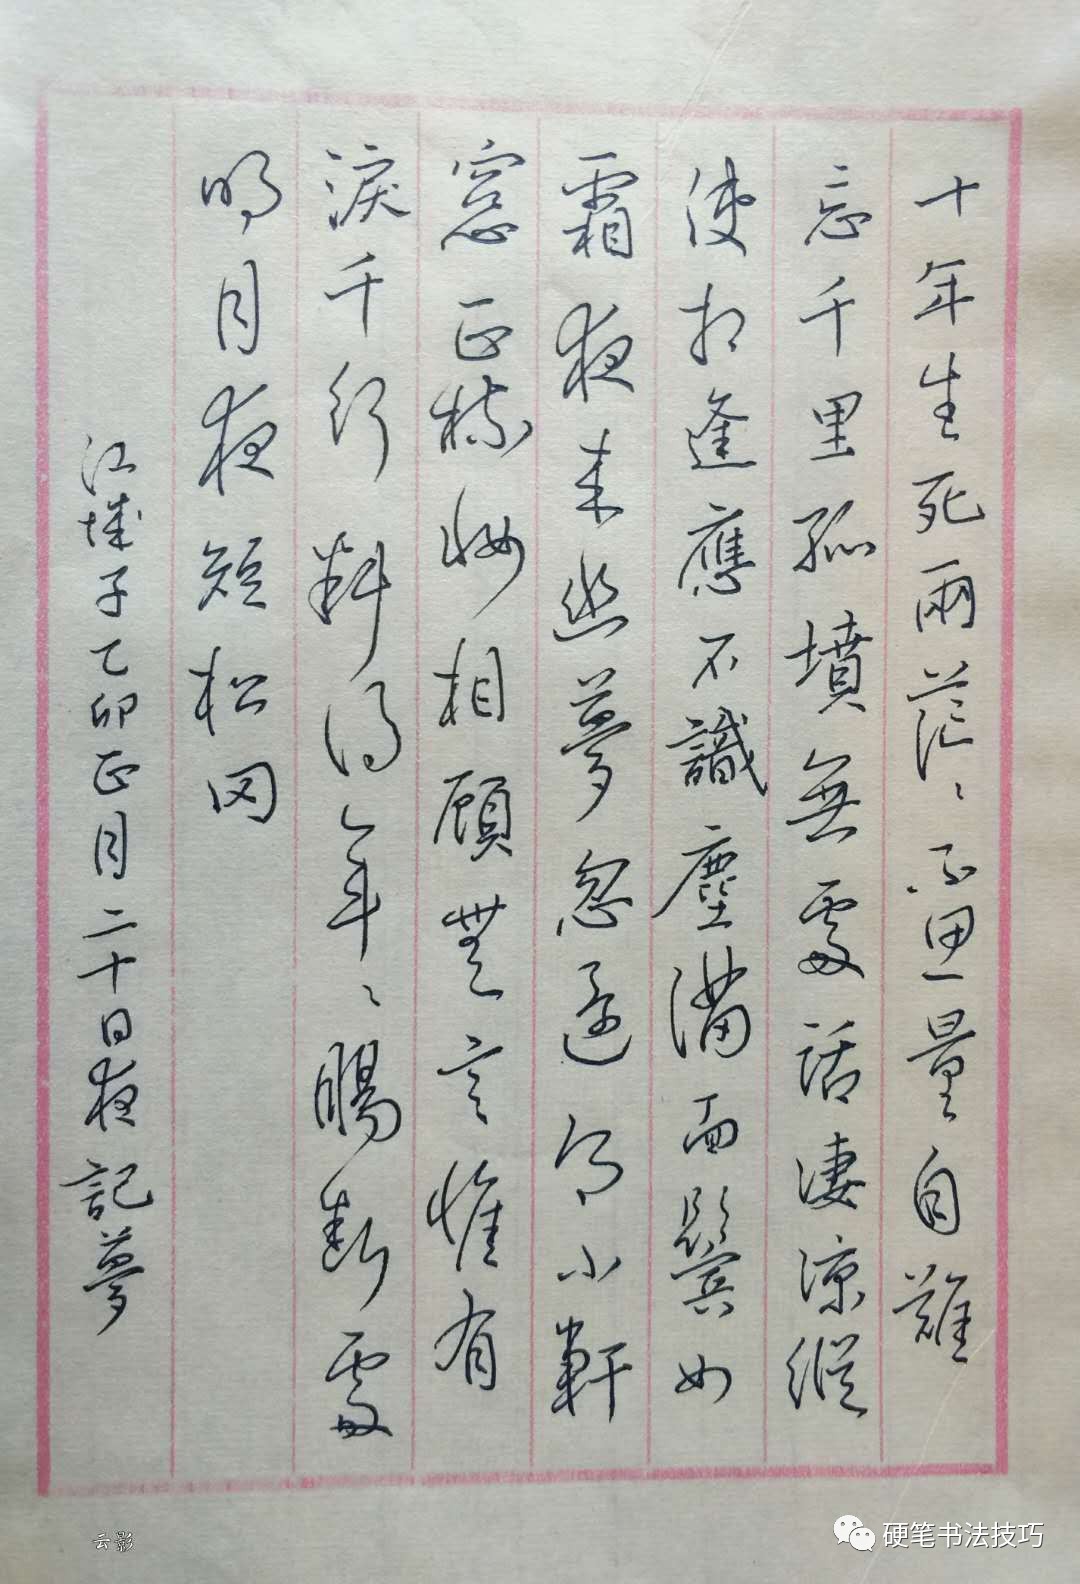 十年生死兩茫〻不思量自難
忘千里孤墳無處話淒涼縱
使相逢應不識塵滿面鬢如
霜夜來幽夢忽還鄉小軒
窓正梳妝相顧無言惟有
淚千行料得年〻腸斷處
明月夜短松冈
江城子乙卯正月二十日夜記夢
云影
硬笔书法技巧